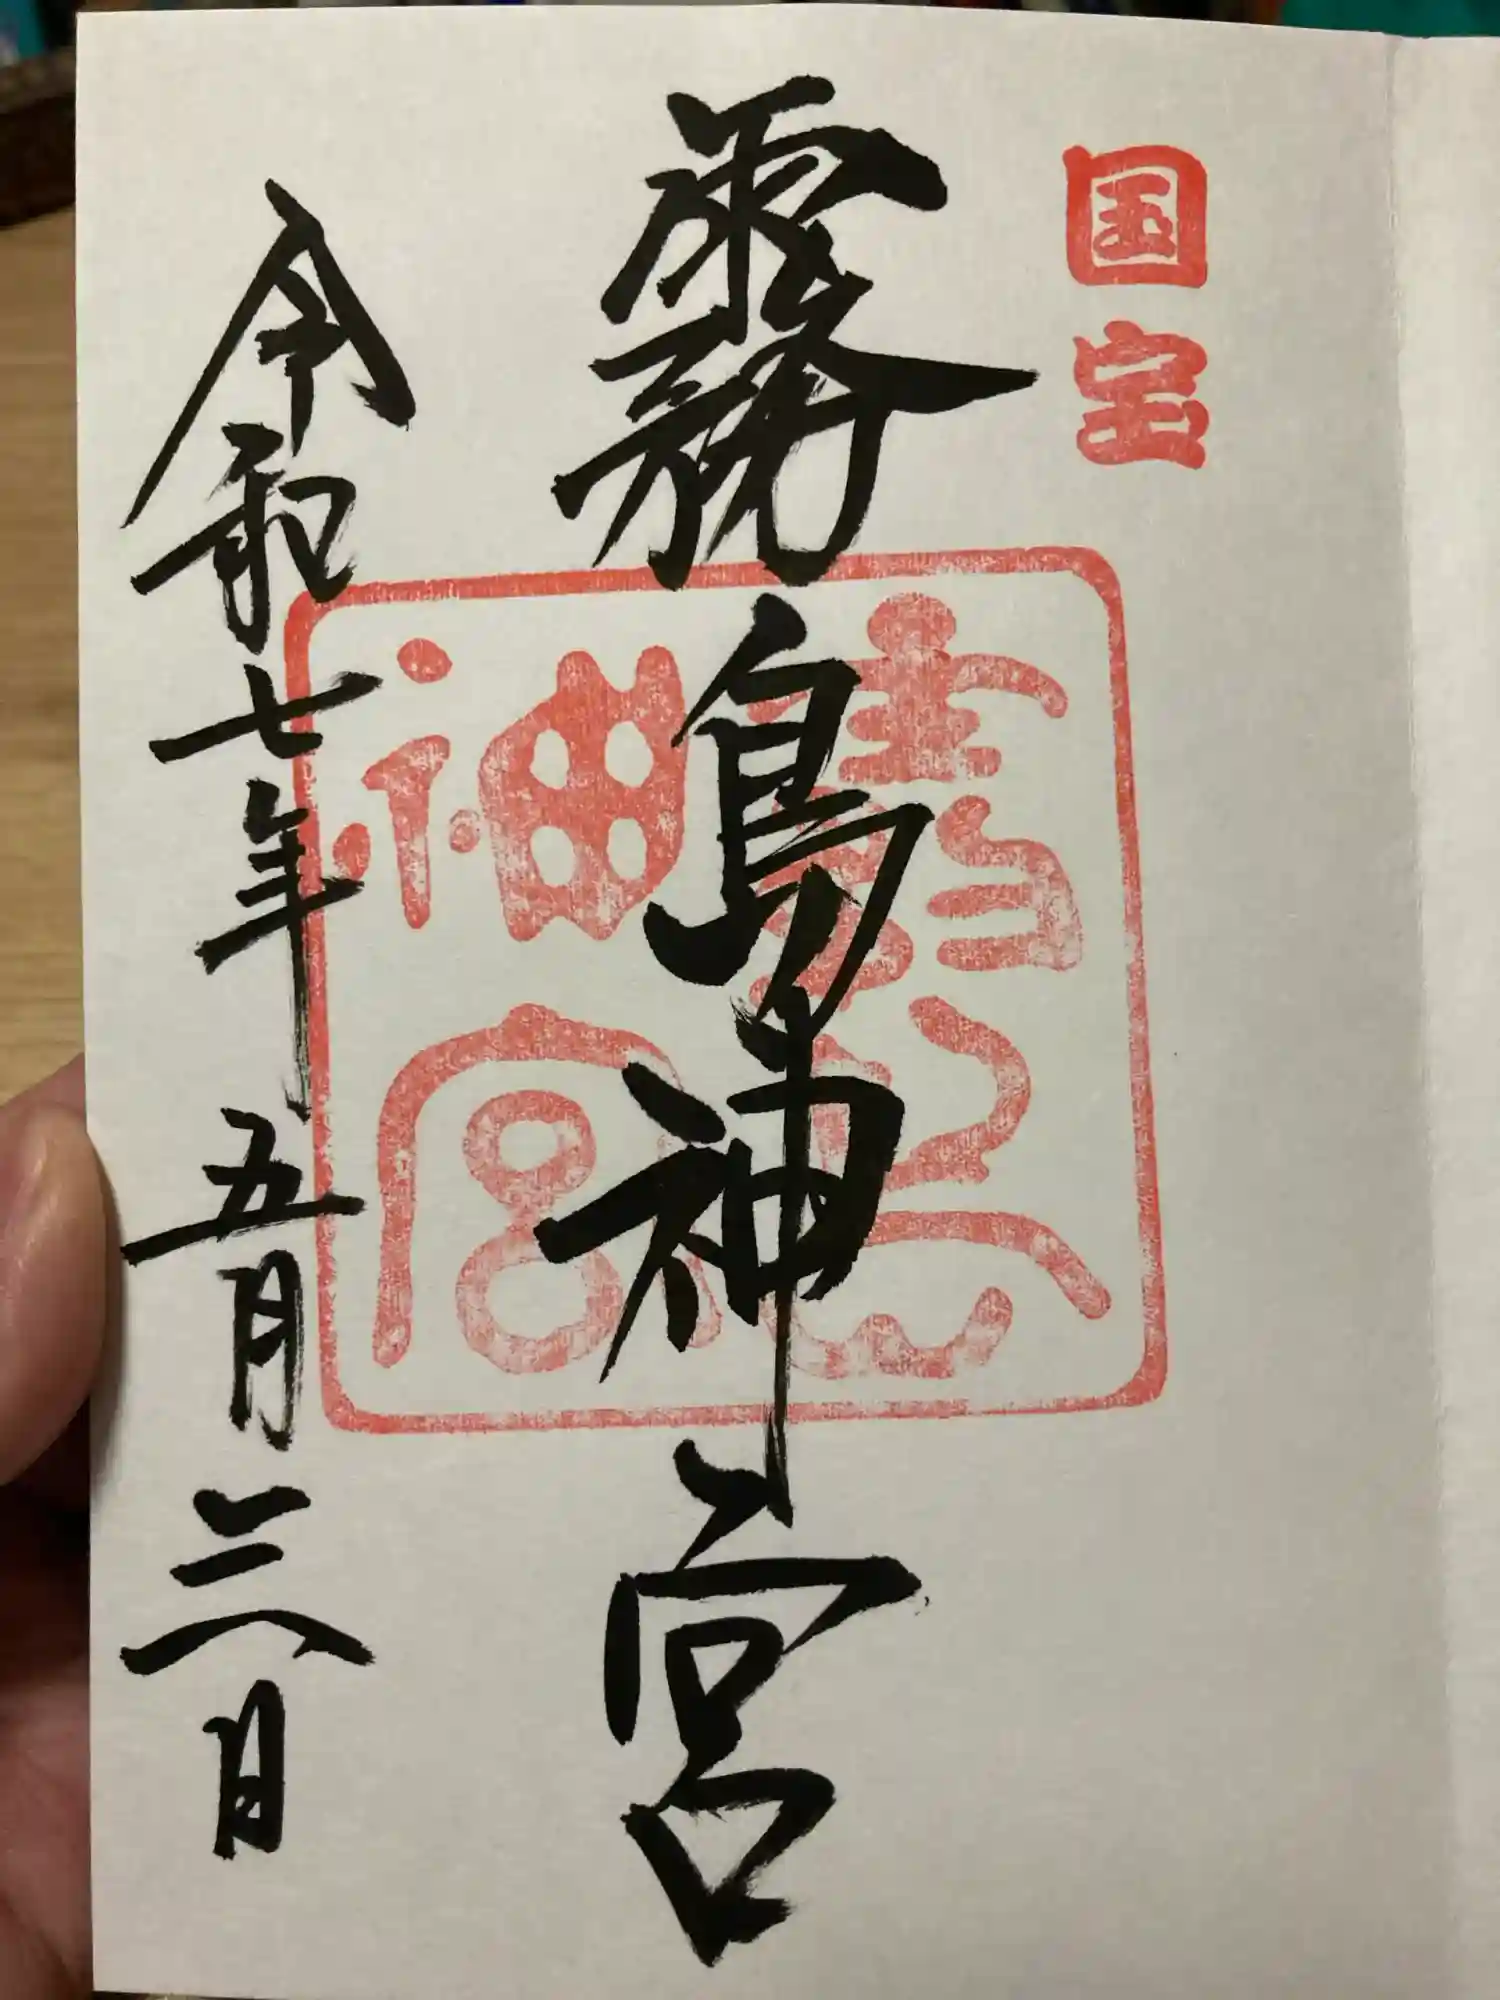 国宝
霧島神宮
霧島神宮
令和七年五月三日